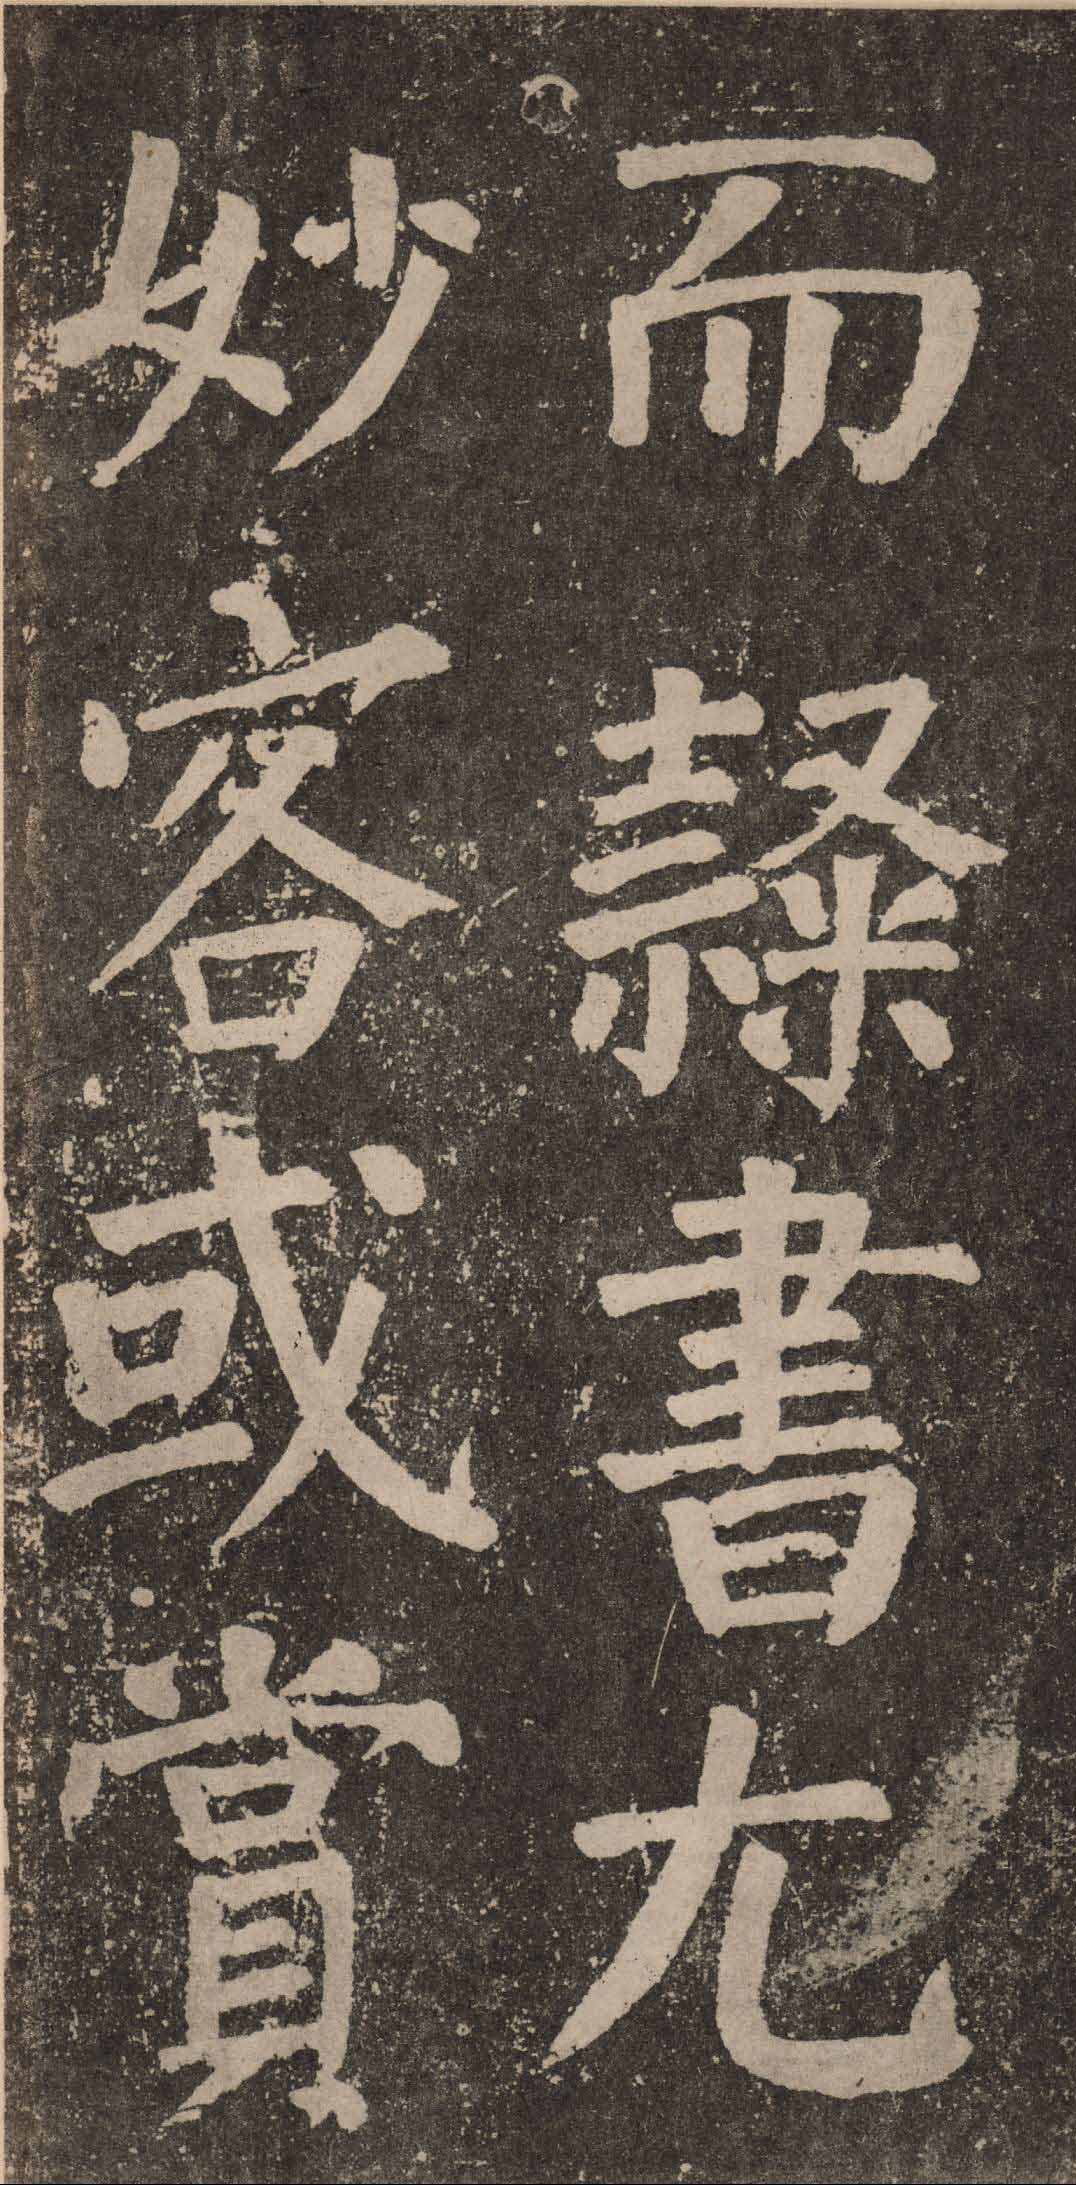 而隸書尤
妙客或賞